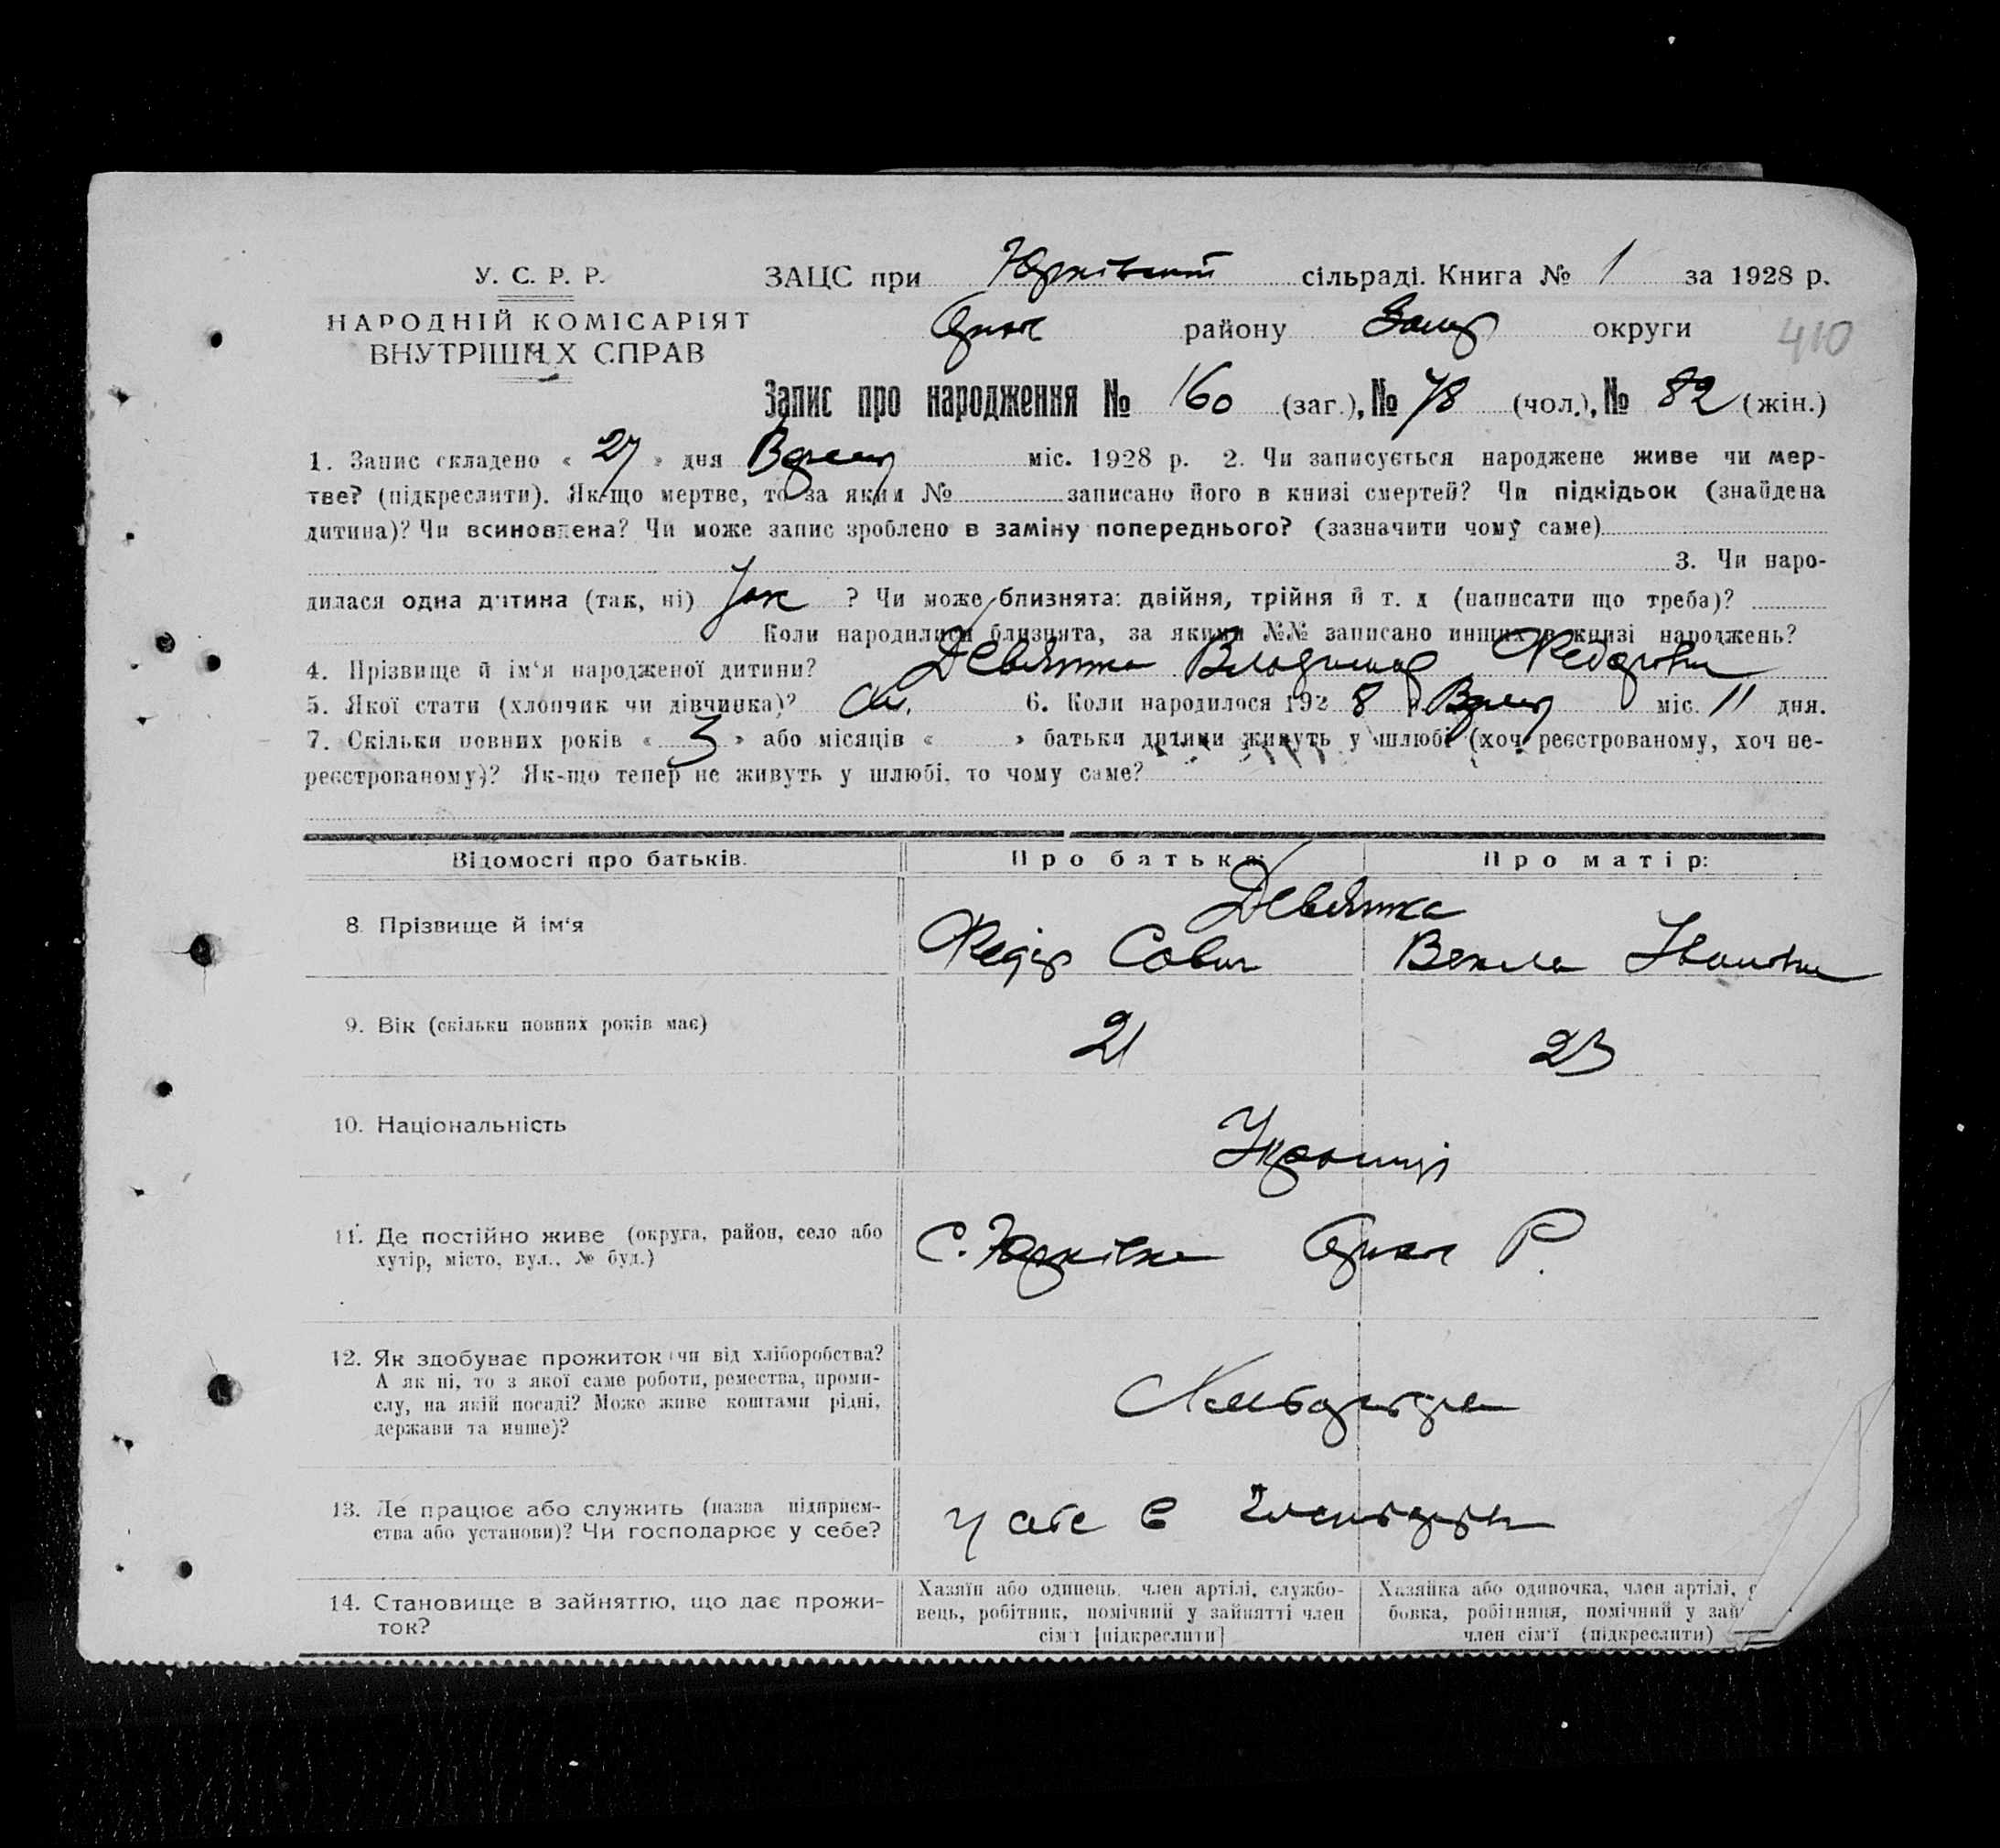 У. С. Р. Р.
НАРОДНІЙ КОМІСАРІЯТ
ВНУТРІШНІХ СПРАВ
ЗАЦС при Юрківській сільраді. Книга № 1 за 1928 р.
Оріх району Запор округи
410
Запис про народження № 160 (заг.), № 78 (чол.), № 82 (жін.)
1. Запис складено « 27 » дня Верес міс. 1928 р. 2. Чи записується народжене живе чи мер-
тве? (підкреслити). Як-що мертве, то за яким № записано його в книзі смертей? Чи підкідьок (знайдена
дитина)? Чи всиновлена? Чи може запис зроблено в заміну попереднього? (зазначити чому саме)
3. Чи наро-
дилася одна дитина (так, ні) Так ? Чи може близнята: двійня, трійня й т. д (написати що треба)?
Коли народилися близнята, за якими №№ записано инших в книзі народжень?
4. Прізвище й ім'я народженої дитини? Девятка Владимир Федоров
5. Якої стати (хлопчик чи дівчинка)? 6. Коли народилося 1928 р. Верес міс. 11 дня.
7. Скільки повних років « 3 » або місяців « » батьки дитини живуть у шлюбі (хоч реєстрованому, хоч не-
реєстрованому)? Як-що тепер не живуть у шлюбі, то чому саме?
Відомості про батьків. Про батька: Про матір:
Девятка
8. Прізвище й ім'я Федір Сович Векла Іванівна
9. Вік (скільки повних років має) 21 23
10. Національність Українці
11. Де постійно живе (округа, район, село або
хутір, місто, вул., № буд.) С. Юрківка Оріх Р.
12. Як здобуває прожиток (чи від хліборобства?
А як ні, то з якої саме роботи, ремества, проми-
слу, на якій посаді? Може живе коштами рідні,
держави та инше)? Хліборобство
13. Де працює або служить (назва підприєм-
ства або установи)? Чи господарює у себе? у себе в господарстві
14. Становище в зайняттю, що дає прожи-
ток?
Хазяїн або одинець, член артілі, службо-
вець, робітник, помічний у зайнятті член
сім'ї [підкреслити]
Хазяйка або одиночка, член артілі, с
бовка, робітниця, помічний у зай
член сім'ї (підкреслити)